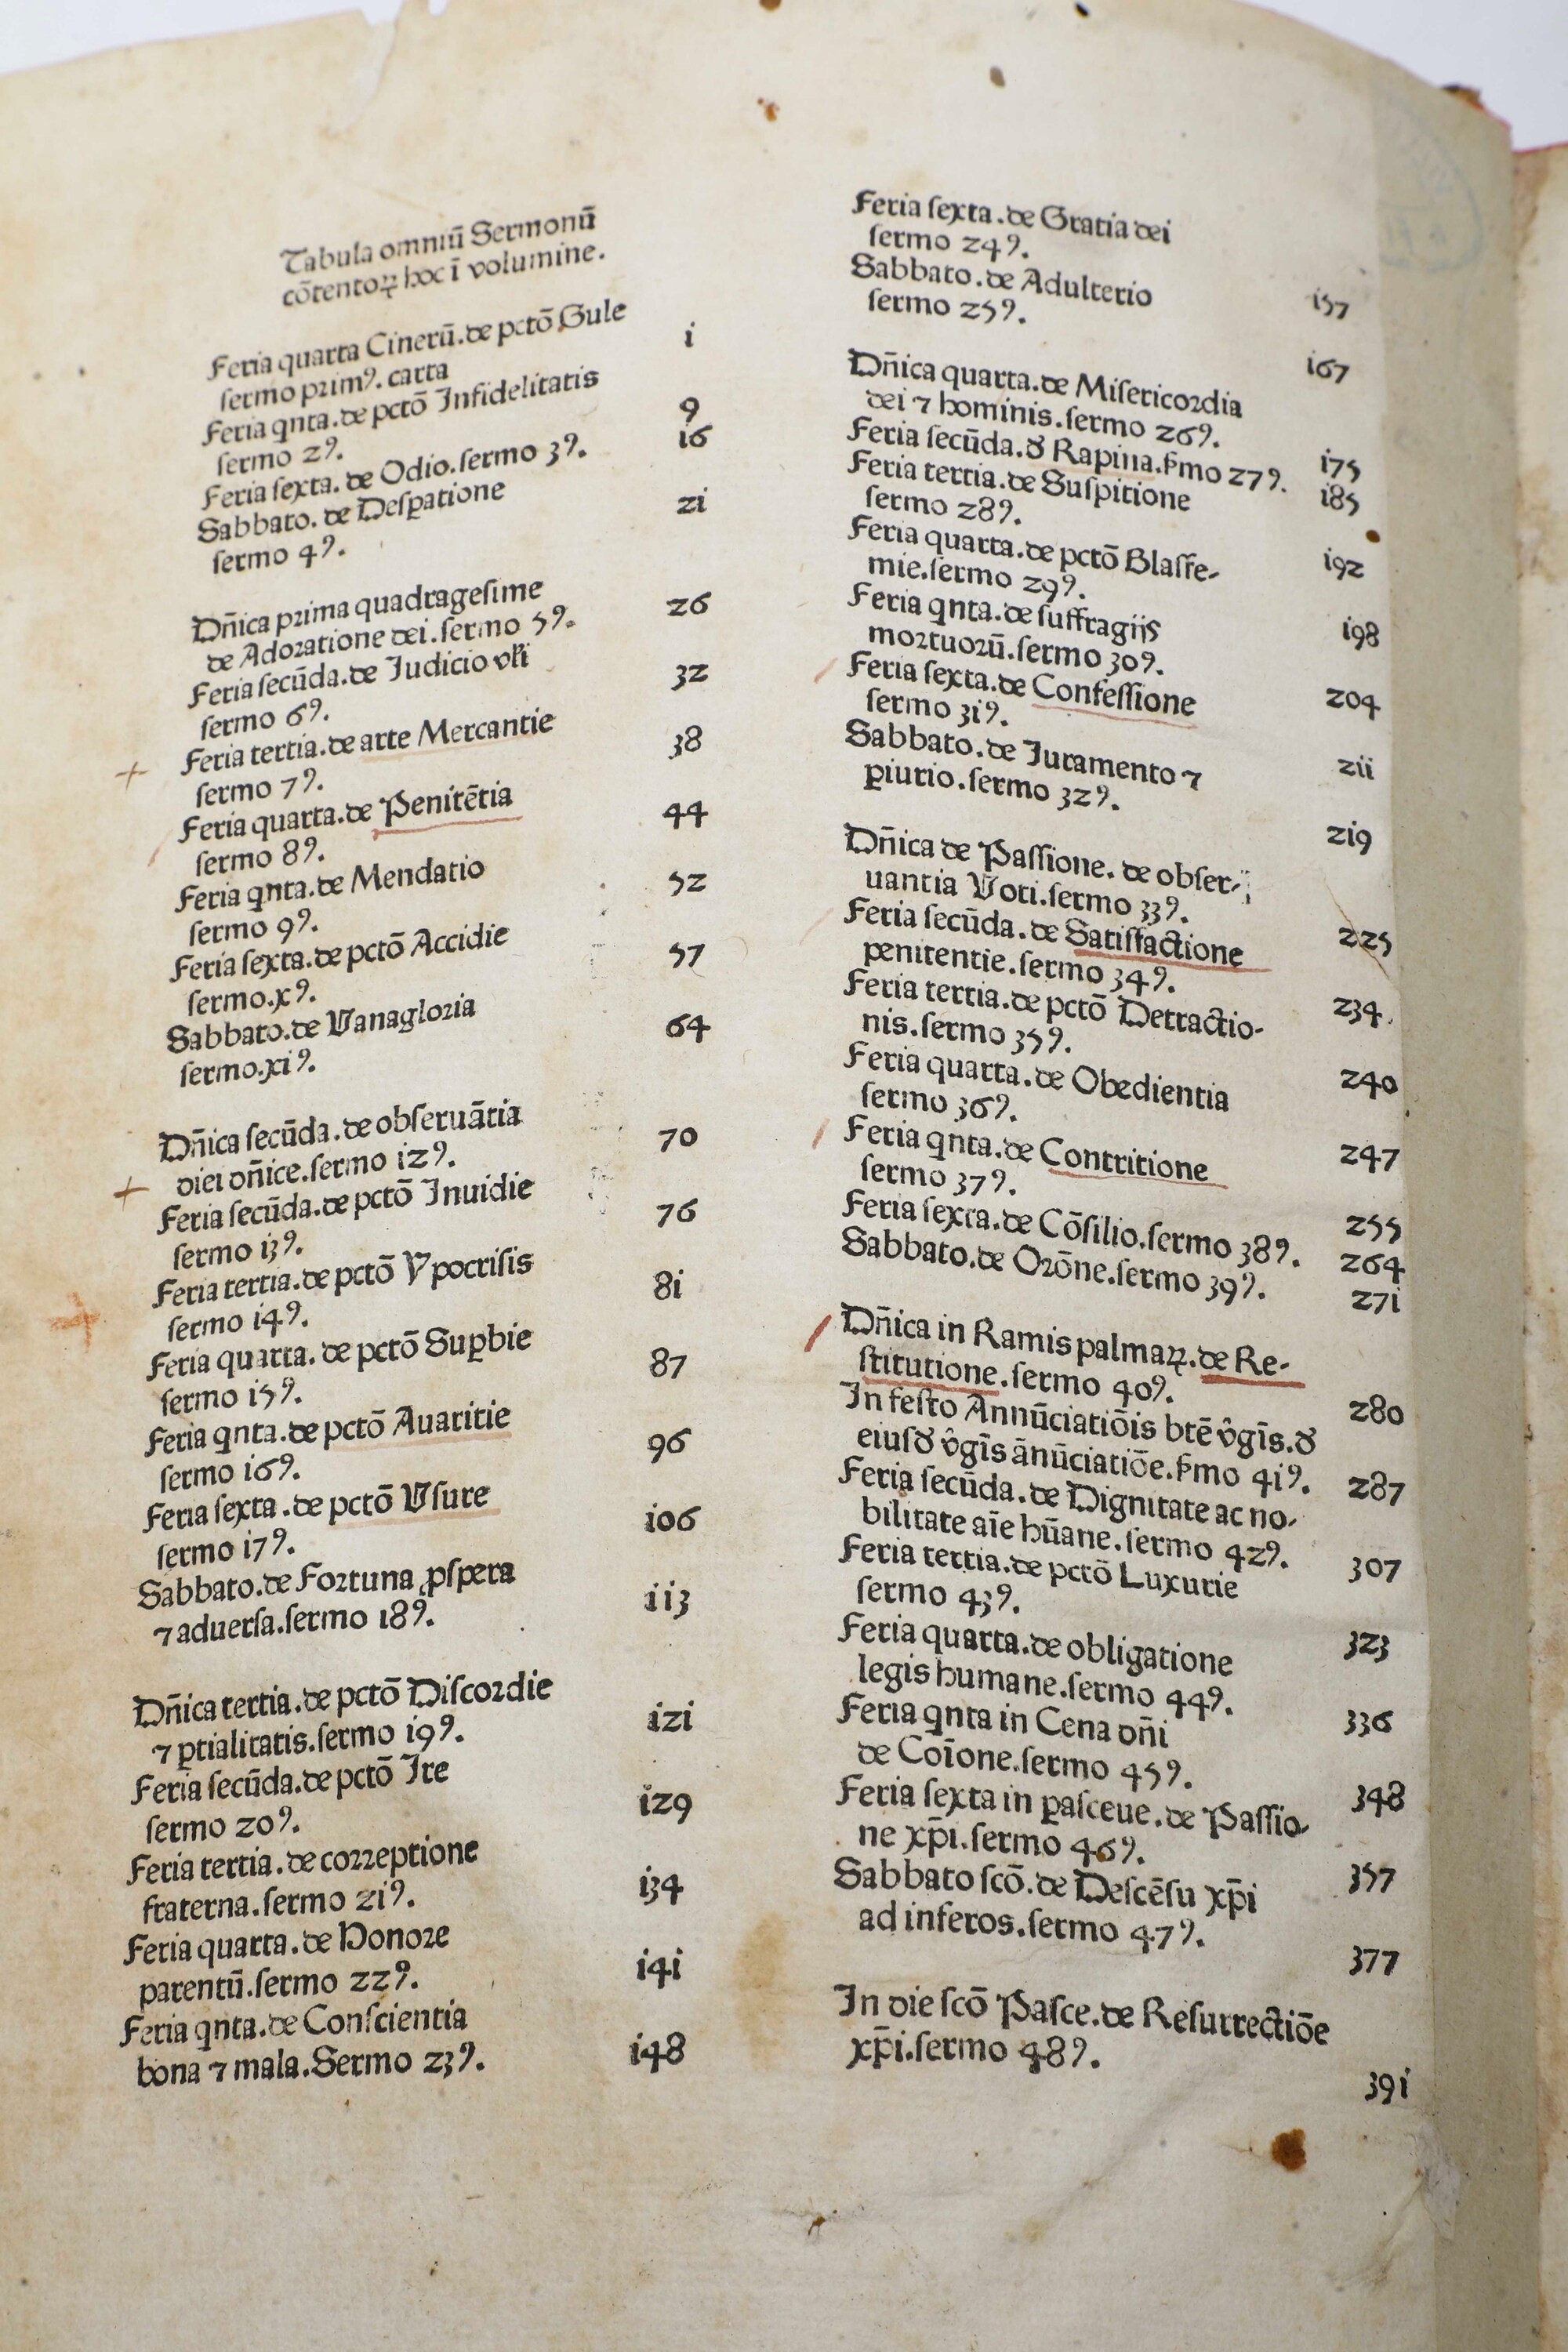 Tabula omniū Sermonū
cōtentoꝝ hoc ī volumine.
Feria quarta Cinerū.de pctō Gule
sermo primꝰ. carta i
Feria qnta.de pctō Infidelitatis
sermo 2ꝰ. 9
Feria sexta. de Odio.sermo 3ꝰ. 16
Sabbato. de Desꝑatione
sermo 4ꝰ. 2i
Dn̄ica prima quadragesime
de Adoratione dei.sermo 5ꝰ. 26
Feria secūda.de Iudicio vl̄i
sermo 6ꝰ. 32
Feria tertia.de arte Mercantie
sermo 7ꝰ. 38
Feria quarta.de Penitētia
sermo 8ꝰ. 44
Feria qnta.de Mendatio
sermo 9ꝰ. 52
Feria sexta.de pctō Accidie
sermo.xꝰ. 57
Sabbato.de Vanagloria
sermo.xiꝰ. 64
Dn̄ica secūda.de obseruātia
diei dn̄ice.sermo i2ꝰ. 70
Feria secūda.de pctō Inuidie
sermo i3ꝰ. 76
Feria tertia.de pctō Ypocrisis
sermo i4ꝰ. 8i
Feria quarta. de pctō Suꝑbie
sermo i5ꝰ. 87
Feria qnta.de pctō Auaritie
sermo i6ꝰ. 96
Feria sexta.de pctō Vsure
sermo i7ꝰ. i06
Sabbato.de Fortuna ꝓspera
⁊ aduersa.sermo 18ꝰ. ii3
Dn̄ica tertia.de pctō Discordie
⁊ ꝑtialitatis.sermo i9ꝰ. i2i
Feria secūda.de pctō Ire
sermo 20ꝰ. i29
Feria tertia.de correptione
fraterna.sermo 2iꝰ. i34
Feria quarta.de Honore
parentū.sermo 22ꝰ. i4i
Feria qnta.de Conscientia
bona ⁊ mala.Sermo 23ꝰ. i48
Feria sexta.de Gratia dei
sermo 24ꝰ. i57
Sabbato.de Adulterio
sermo 25ꝰ. i67
Dn̄ica quarta.de Misericordia
dei ⁊ hominis.sermo 26ꝰ. i75
Feria secūda.ď Rapina.ẜmo 27ꝰ. i85
Feria tertia.de Suspitione
sermo 28ꝰ. i92
Feria quarta.de pctō Blasfe-
mie.sermo 29ꝰ. i98
Feria qnta.de suffragijs
mortuorū.sermo 30ꝰ. 204
Feria sexta.de Confessione
sermo 3iꝰ. 2ii
Sabbato.de Iuramento ⁊
ꝑiurio.sermo 32ꝰ. 2i9
Dn̄ica de Passione. de obser-
uantia Voti.sermo 33ꝰ. 225
Feria secūda.de Satisfactione
penitentie.sermo 34ꝰ. 234
Feria tertia.de pctō Detractio-
nis.sermo 35ꝰ. 240
Feria quarta.de Obedientia
sermo 36ꝰ. 247
Feria qnta.de Contritione
sermo 37ꝰ. 255
Feria sexta.de Cōsilio.sermo 38ꝰ. 264
Sabbato.de Orōne.sermo 39ꝰ. 27i
Dn̄ica in Ramis palmaꝝ.de Re-
stitutione.sermo 40ꝰ. 280
In festo Annūciatiōis btē v̂gīs.ď
eiusď v̂gīs ānūciatiōe.ẜmo 4iꝰ. 287
Feria secūda.de Dignitate ac no-
bilitate aīe hūane.sermo 42ꝰ. 307
Feria tertia.de pctō Luxurie
sermo 43ꝰ. 323
Feria quarta.de obligatione
legis humane.sermo 44ꝰ. 336
Feria qnta in Cena dn̄i
de Coīone.sermo 45ꝰ. 348
Feria sexta in ꝑasceue.de Passio-
ne xp̄i.sermo 46ꝰ. 357
Sabbato scō.de Descēsu xp̄i
ad inferos.sermo 47ꝰ. 377
In die scō Pasce.de Resurrectiōe
xp̄i.sermo 48ꝰ. 39i